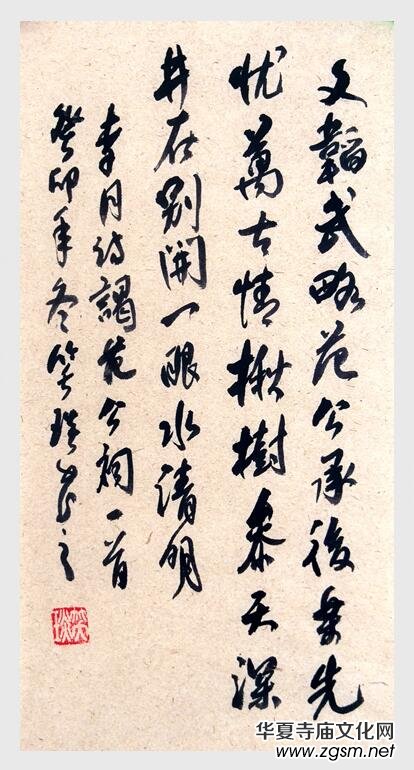 文韜武略范公承後樂先
忧萬古情楸樹參天深
井在別開一眼水清明
李月詩謁范公祠一首
癸卯年冬笑琰書之
华夏寺庙文化网
www.zgsm.net